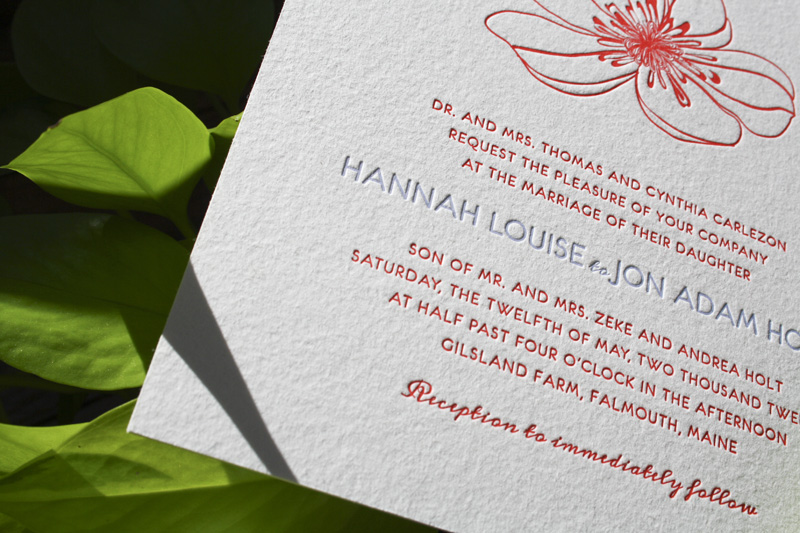 DR. AND MRS. THOMAS AND CYNTHIA CARLEZON
REQUEST THE PLEASURE OF YOUR COMPANY
AT THE MARRIAGE OF THEIR DAUGHTER
HANNAH LOUISE to JON ADAM HO
SON OF MR. AND MRS. ZEKE AND ANDREA HOLT
SATURDAY, THE TWELFTH OF MAY, TWO THOUSAND TWE
AT HALF PAST FOUR O'CLOCK IN THE AFTERNOON
GILSLAND FARM, FALMOUTH, MAINE
Reception to immediately follow